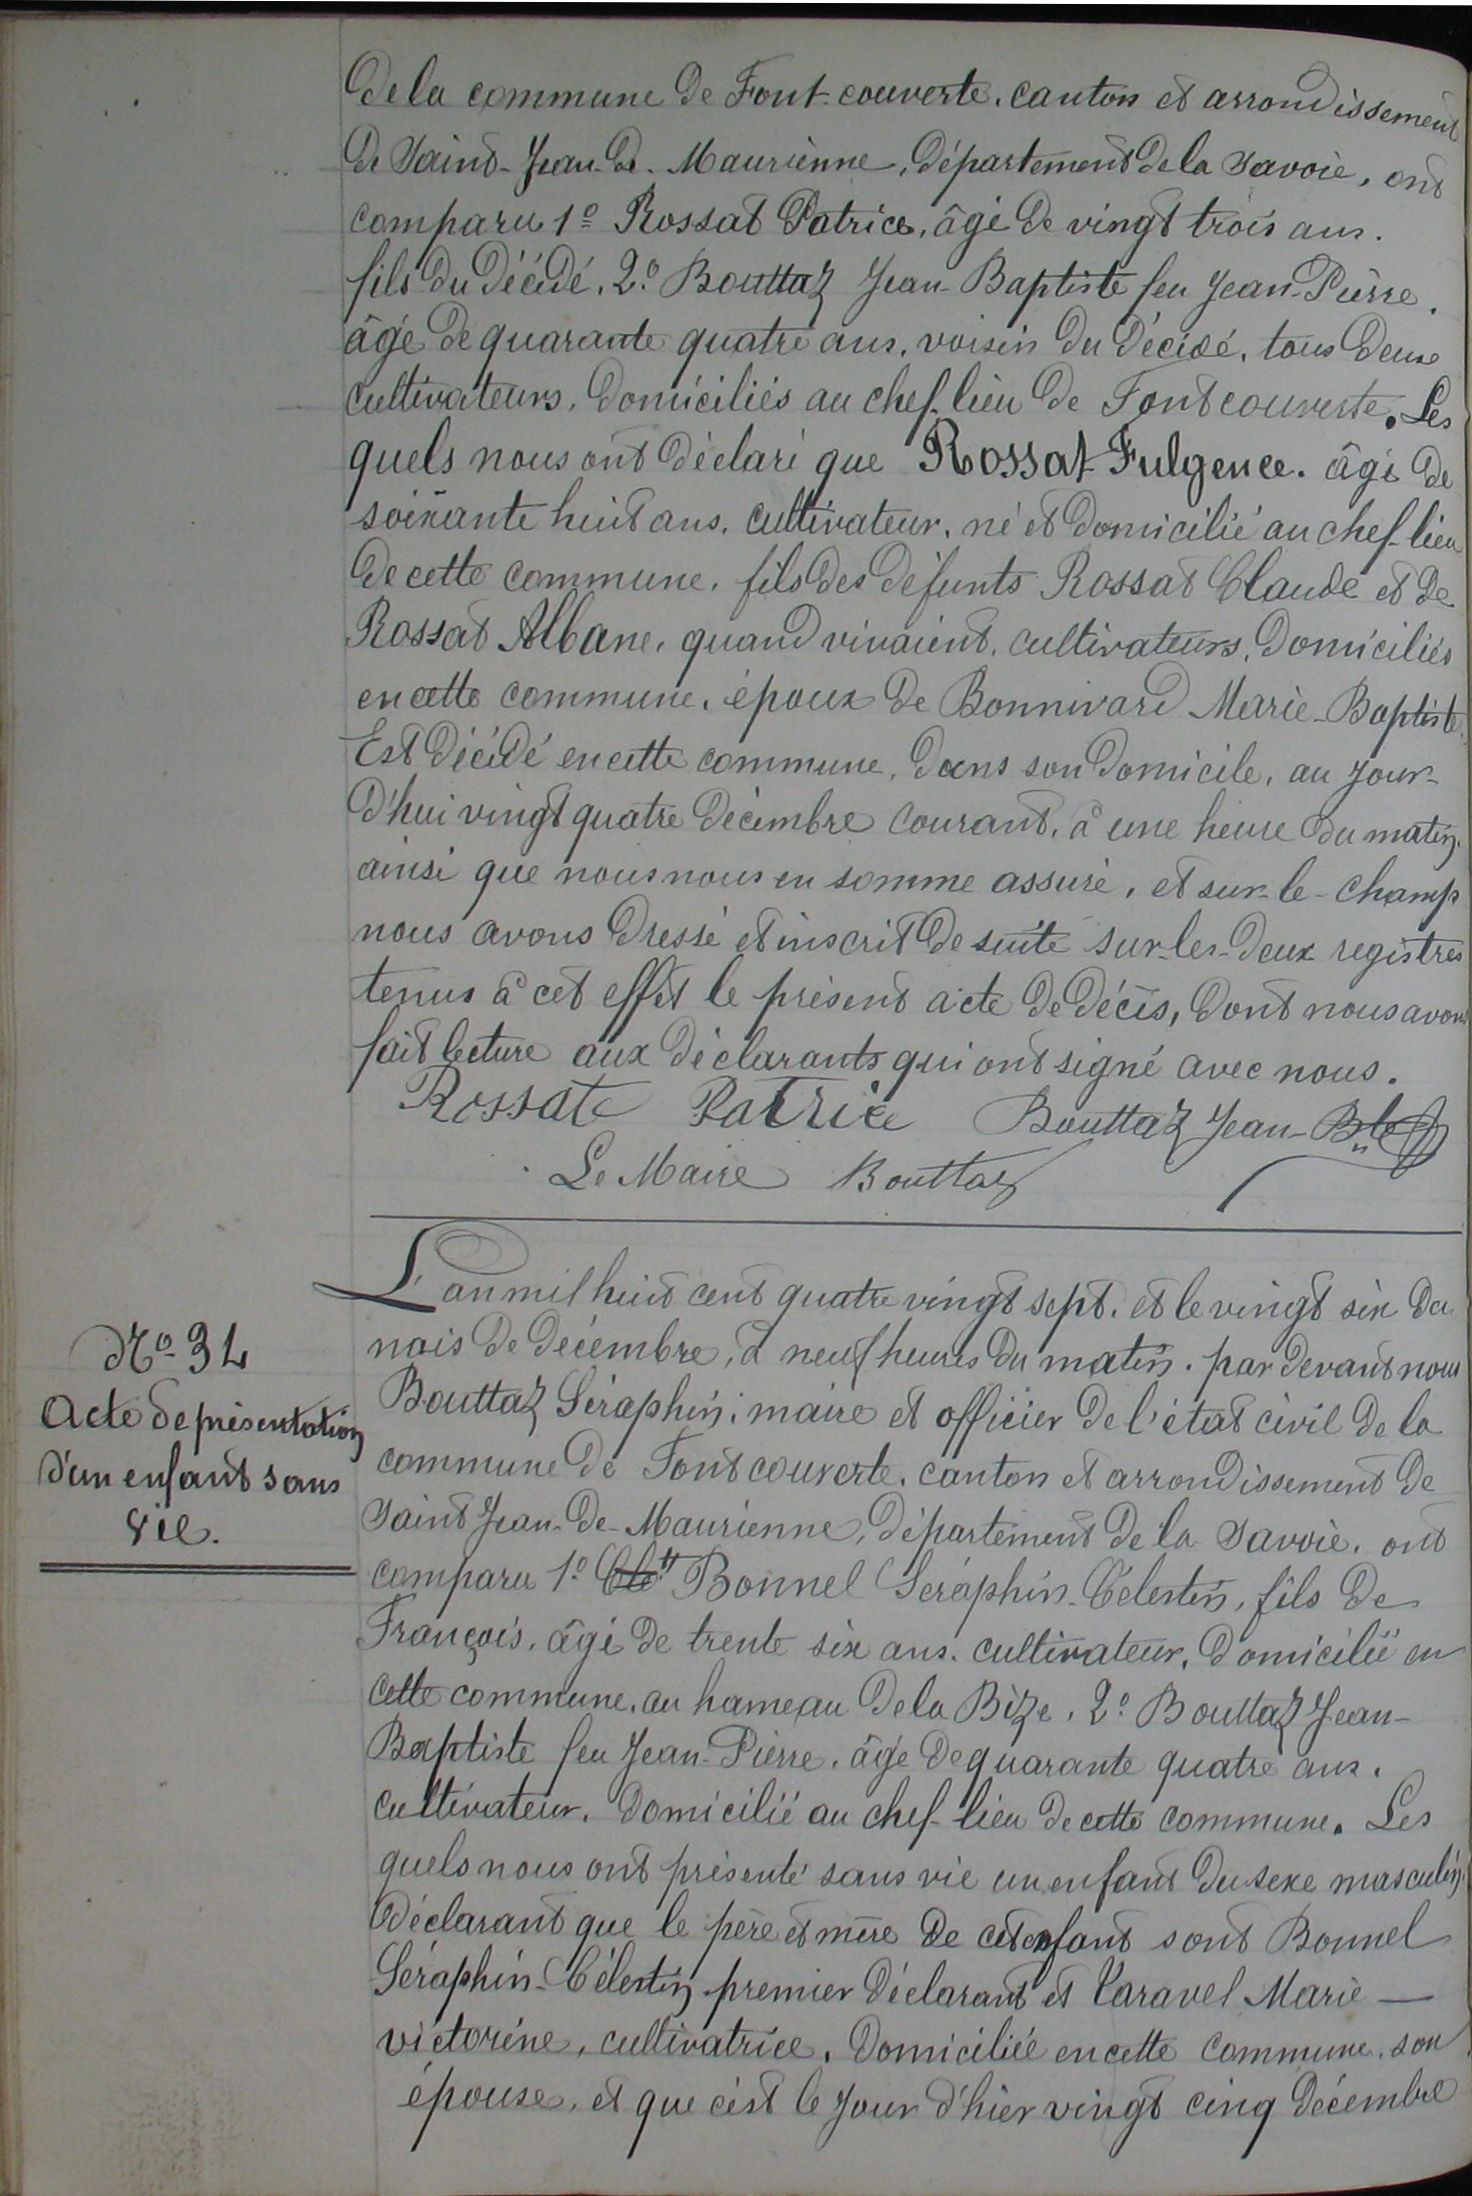 de la commune de Font-couverte, canton et arrondissement
de Saint-Jean-de-Maurienne, département de la Savoie, ont
comparu 1º Rossat Patrice, âgé de vingt trois ans.
fils du décédé, 2º Bouttaz Jean-Baptiste feu Jean-Pierre.
âgé de quarante quatre ans, voisin du décédé, tous deux
cultivateurs, domiciliés au chef-lieu de Fontcouverte. Les
quels nous ont déclaré que Rossat Fulgence. âgé de
soixante huit ans, cultivateur, né et domicilié au chef-lieu
de cette commune, fils des défunts Rossat Claude et de
Rossat Albane, quand vivaient, cultivateurs, domiciliés
en cette commune, époux de Bonnivard Marie-Baptiste.
Est décédé en cette commune, dans son domicile, au jour-
d'hui vingt quatre décembre courant, à une heure du matin,
ainsi que nous nous en somme assuré, et sur-le-champ
nous avons dressé et inscrit de suite sur-les-deux registres
tenus à cet effet le présent acte de décès, dont nous avons
fait lecture aux déclarants qui ont signé avec nous.
Rossate Patrice Bouttaz Jean-Bte
Le Maire Bouttaz
L'an mil huit cent quatre vingt sept, et le vingt six du
Nº 34
mois de décembre, à neuf heures du matin, par devant nous
Acte de présentation
Bouttaz Séraphin, maire et officier de l'état civil de la
d'un enfant sans
commune de Fontcouverte, canton et arrondissement de
vie.
Saint Jean-de-Maurienne, département de la Savoie, ont
comparu 1º Bonnel Séraphin-Célestin, fils de
François, âgé de trente six ans, cultivateur, domicilié en
cette commune, au hameau de la Bize, 2º Bouttaz Jean-
Baptiste feu Jean-Pierre, âgé de quarante quatre ans,
cultivateur, domicilié au chef-lieu de cette commune. Les
quels nous ont présenté sans vie un enfant du sexe masculin,
déclarant que le père et mère de cet enfant sont Bonnel
Séraphin-Célestin premier déclarant et Taravel Marie —
victorine, cultivatrice, domiciliée en cette commune, son
épouse, et que c'est le jour d'hier vingt cinq décembre